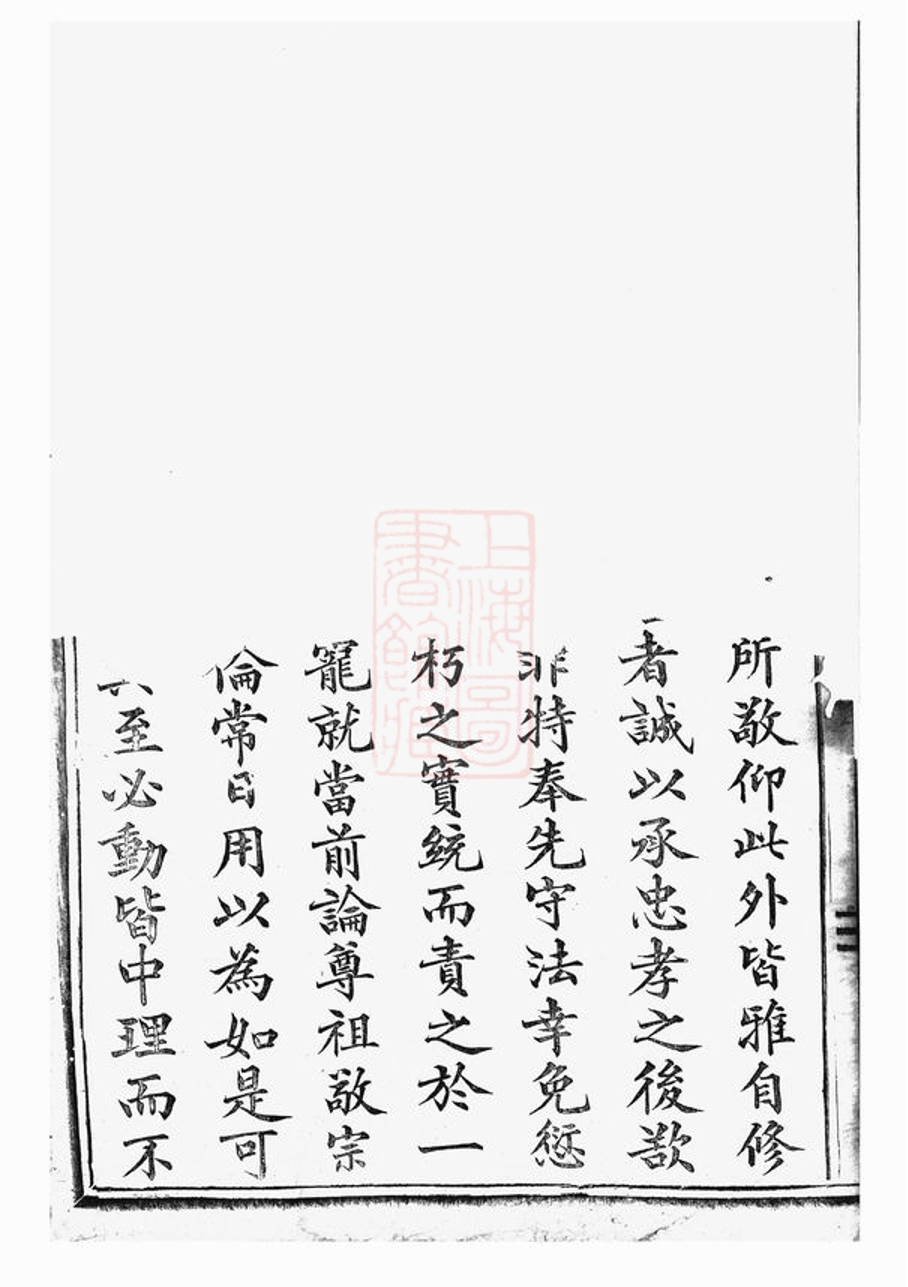 所敬仰此外皆雅自修
者誠以承忠孝之後歆
非特奉先守法幸免愆
朽之實統而責之於一
寵就當前論尊祖敬宗
倫常日用以為如是可
至必動皆中理而不
上海圖書館藏